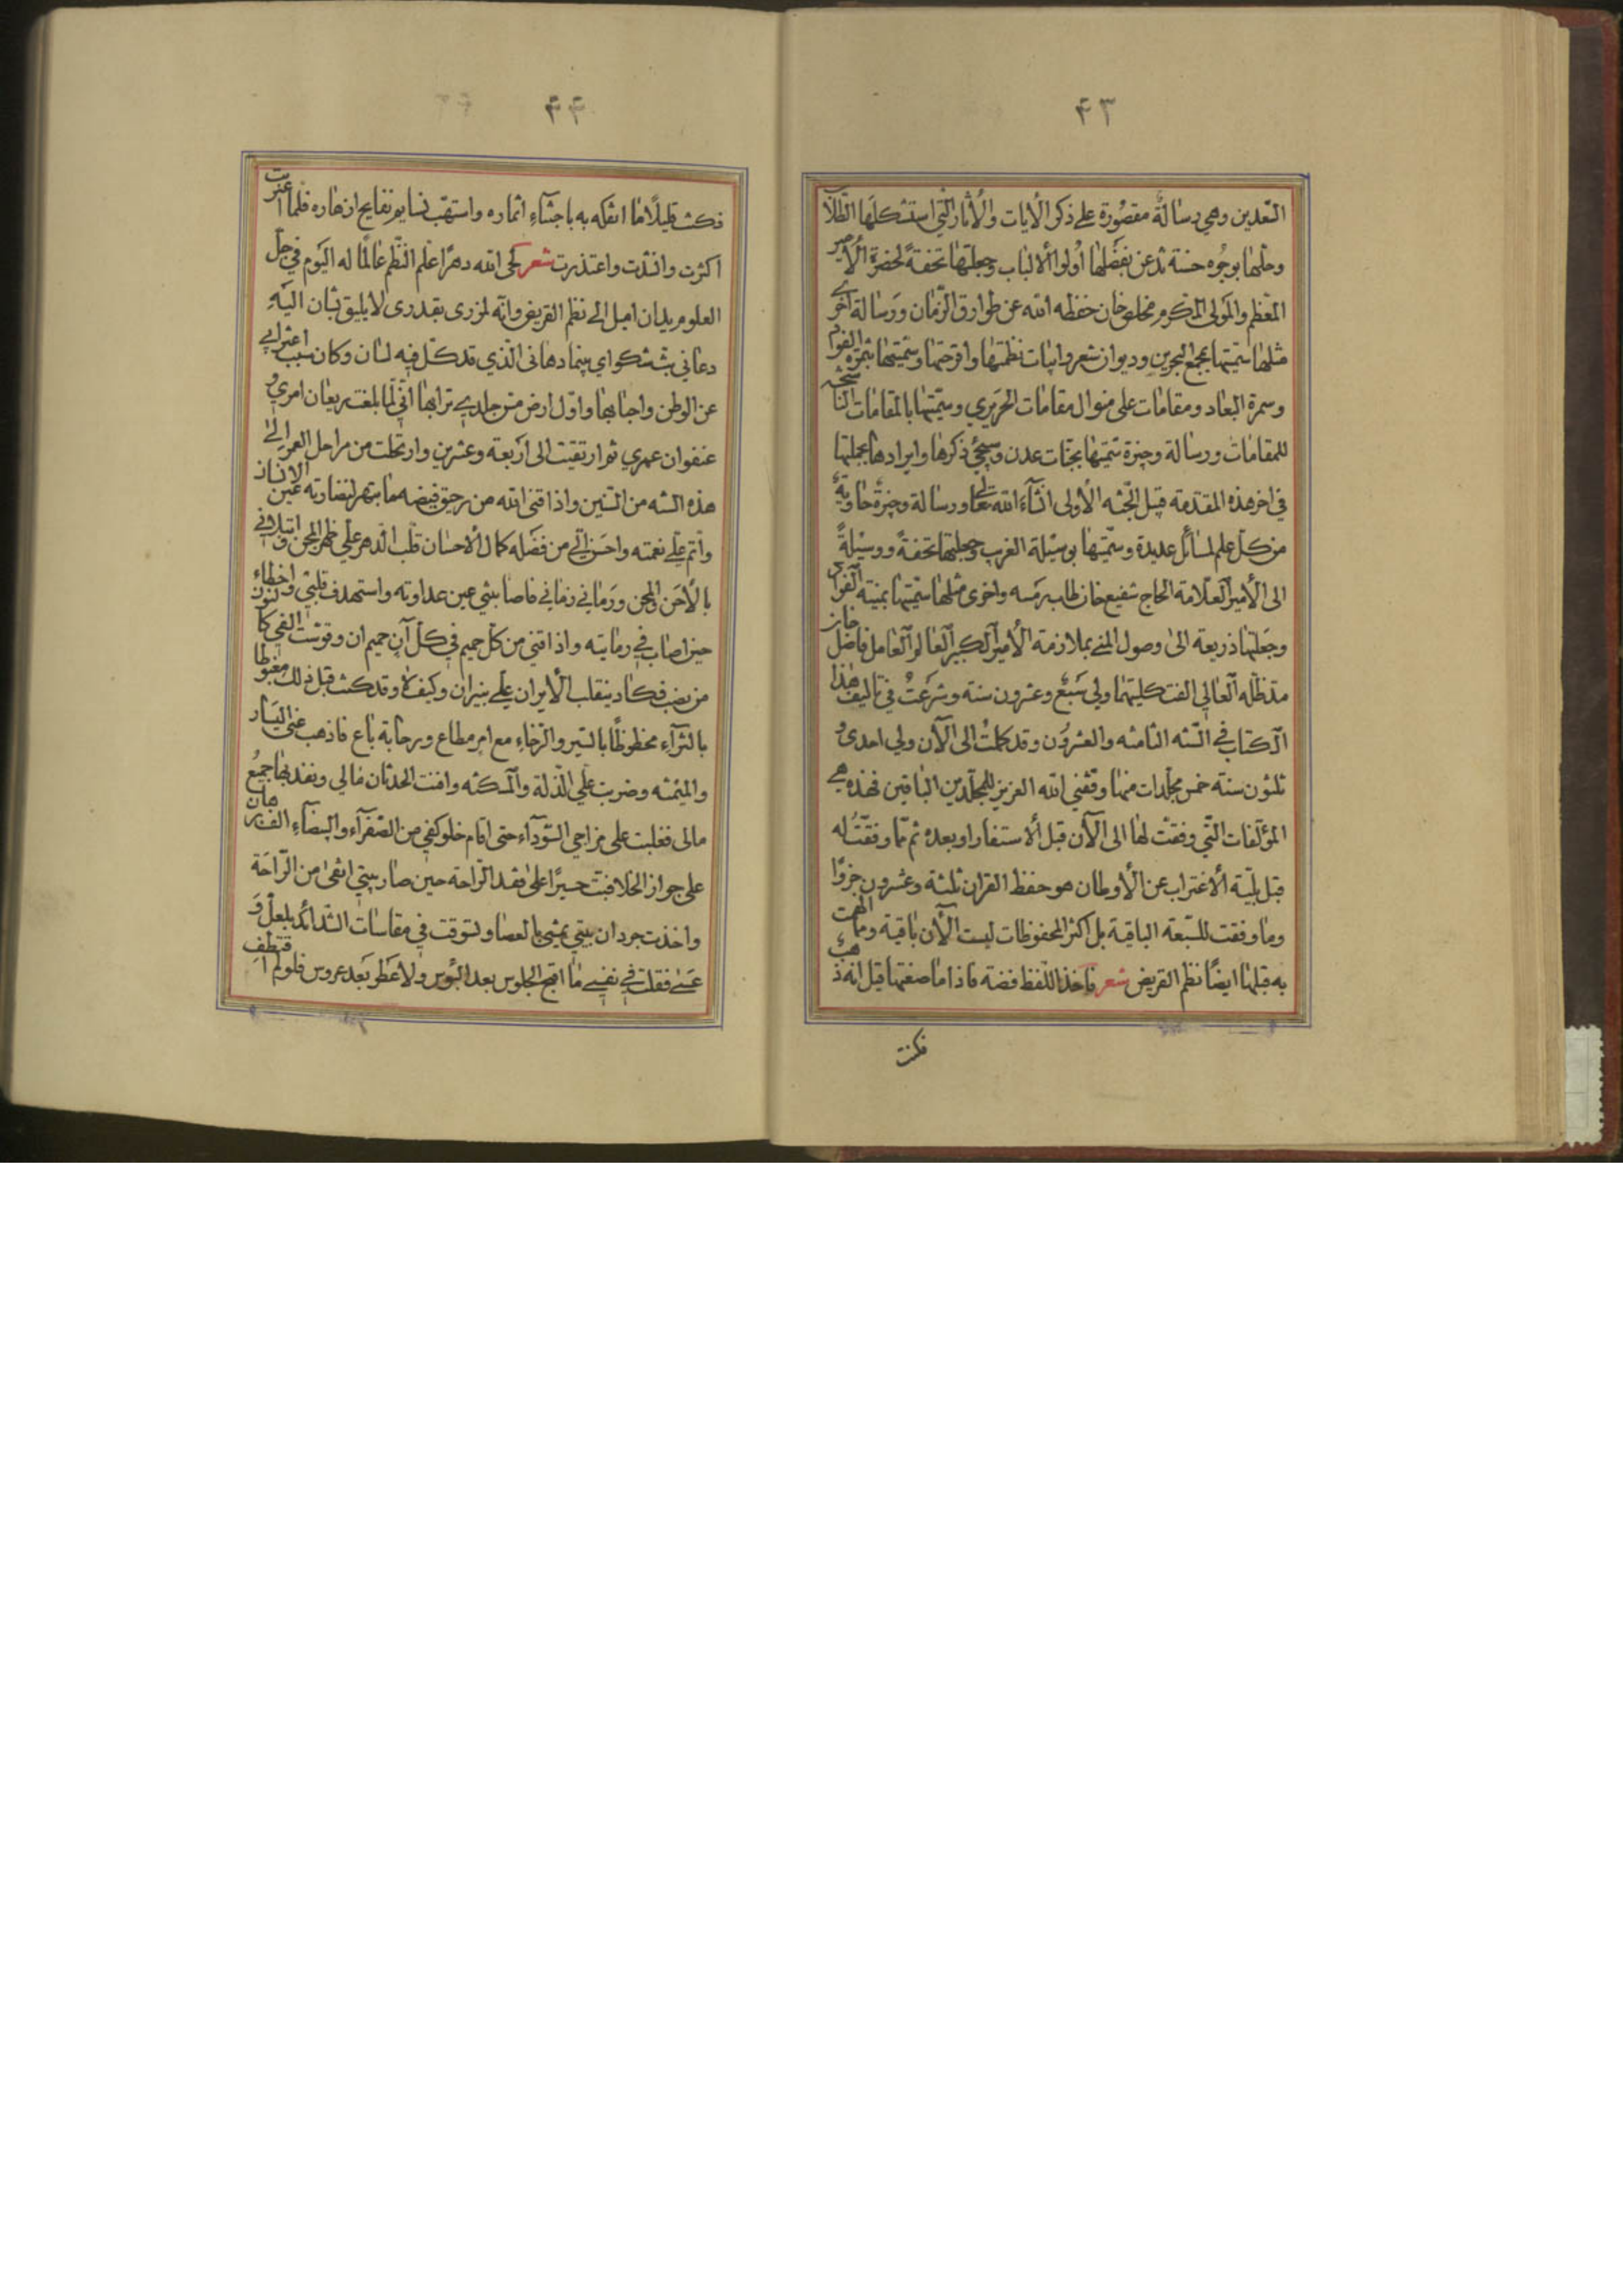 ۴۳
التعدين وهي رسالة مقصورة على ذكر الايات والاثار التي استشكلها الطلاب
وحلها بوجوه حسنة تذعن بفضلها أولوا الالباب وجعلتها تحفة لحضرة الامير
المعظم والمولى المكرم مخلص خان حفظه الله عن طوارق الزمان ورسالة اخرى
مثلها سميتها بمجمع البحرين وديوان شعر وابيات نظمتها واقرحتها وسميتها بثمرة الفؤاد
وسمرة البعاد ومقامات على منوال مقامات الحريري وسميتها بالمقامات الناسخة
للمقامات ورسالة وجيزة سميتها بجنات عدن وسيجئ ذكرها وايرادها بجملتها
في اخر هذه المقدمة قبيل الجنة الأولى انشاء الله تعالى ورسالة وجيزة حاوية
من كل علم لمسائل عديدة وسميتها بوسيلة الغريب وجعلتها تحفة ووسيلة
الى الأمير العلامة الحاج شفيع خان طاب رمسه واخرى مثلها سميتها بمنية الفؤاد
وجعلتها ذريعة الى وصول المنى بملازمة الأمير الكبير العالم العامل فاضل خان
مد ظله العالي الفت كليتهما ولي سبع وعشرون سنة وشرعت في تاليف هذا
الكتاب في السنة الثامنة والعشرون وقد كملت الى الآن ولي احدى و
ثلثون سنة خمس مجلدات منها وفقني الله العزيز للمجلدين الباقين فهذه هي
المؤلفات التي وفقت لها الى الآن قبل الاستفار او بعده ثم مما وفقت له
قبل بلية الاغتراب عن الأوطان هو حفظ القران ثلثة وعشرون جزؤا
وما وفقت للسبعة الباقية بل اكثر المحفوظات ليست الآن باقية ومما الهمت
به قبلها ايضا نظم القريض شعر فاخذ اللفظ فضة فاذا ما صغتها قيل انه ذهب
فكنت
۴۴
فكنت قليلا ما اتفكه به باجتناء اثماره واستهب نسايم نفايح ازهاره فلما اغتربت
اكثرت وانشدت واعتذرت شعر لحى الله دهرا علم النظم عالما له اليوم في جل
العلوم يدان اميل الى نظم القريض وانه لمزرى بقدرى لا يليق بشان اليه
دعاني بث شكواي بينما دهاني الذي قد كل فيه لسان وكان سبب اغترابي
عن الوطن واحبابها واول ارض مس جلدي ترابها اني لما بلغت ريعان امري و
عنفوان عمري ثم ارتقيت الى اربعة وعشرين وارتحلت من مراحل العمر الى
هذه السنة من السنين واذاقني الله من رحيق فيضه ما يبتهر لنضارته عين الانسان
واتم علي نعمته واحسن الي من فضله كمال الأحسان قلب الدهر علي ظهر المجن وابتلاني
بالأحن والمحن ورماني زماني فاصابني عين عداوته واستهدف قلبي واخطاء
حين اصاب في رمايته واذاقني من كل حميم في كل آن حميم ان وقوست الفي كالنون
من نصب فكاد ينقلب الأيران علي بنيران وكيف لا وقد كنت قبل ذلك مغبوطا
بالثراء محظوظا بالسير والرخاء مع امر مطاع ورحابة باع فاذهب عني اليسار
والميمنة وضربت علي الذلة والمسكنة وافنت الحدثان مالي ونفد بها جميع
مالى فغلبت على مزاجي السوداء حتى اقام خلو كفي من الصفراء والبيضاء البرهان
على جواز الخلا فبت حسيرا على فقد الراحة حين صار بيتي انقى من الراحة
واخذت جرذان بيتي يمشي بالعصا وتسوقت في مقاسات الشدائد بلعل و
عسى فقلت في نفسي ما اقبح الجلوس بعد البؤس ولا عطر بعد عروس فلو لم اقتطف